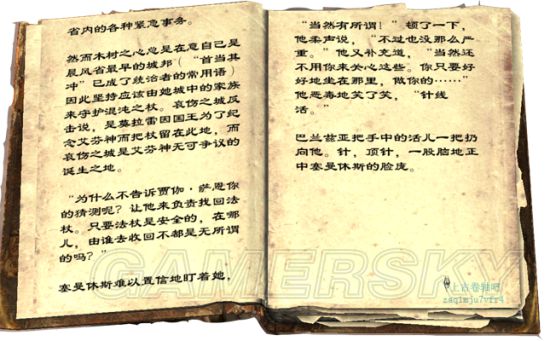 省内的各种紧急事务。
然而木树之心总是在意自己是
晨风省最早的城邦（“首当其
冲”已成了统治者的常用语）
因此坚持应该由她城中的家族
来守护混沌之杖。哀伤之城反
击说，是莫拉雷因国王为了纪
念艾芬神而把杖留在此地，而
哀伤之城是艾芬神无可争议的
诞生之地。
“为什么不告诉贾伽·萨恩你
的猜测呢？让他来负责找回法
杖。只要法杖是安全的，在哪
儿，由谁去收回不都是无所谓
的吗？”
塞曼休斯难以置信地盯着她，
“当然有所谓！”顿了一下，
他柔声说，“不过也没那么严
重。”他又补充道，“当然还
不用你来关心这些。你只要好
好地坐在那里，做你的……”
他恶毒地笑了笑，“针线
活。”
巴兰兹亚把手中的活儿一把扔
向他。针，顶针，一股脑地正
中塞曼休斯的脸庞。
GAMERSKY
上古卷轴吧
zaqimju7vfr4